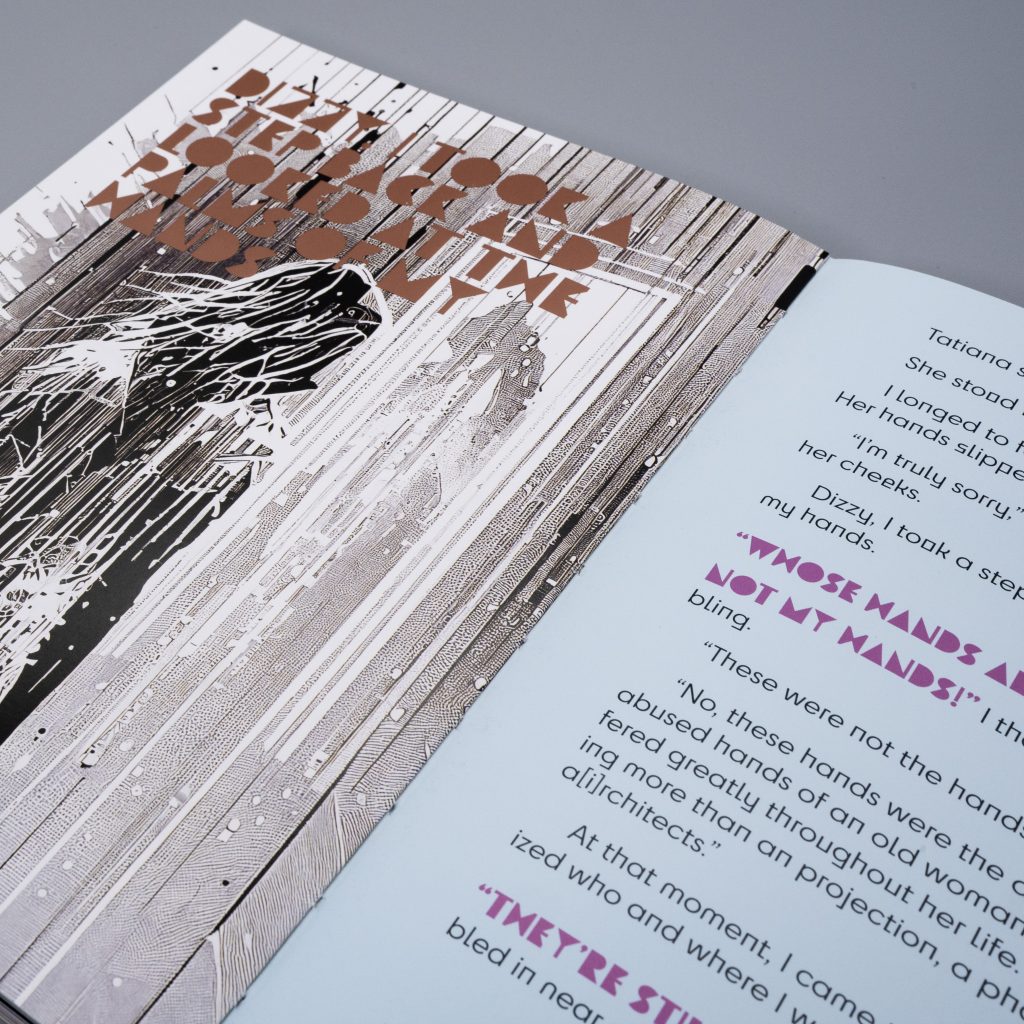 DIZZY, I TOOK A
STEP BACK AND
LOOKED AT THE
PALMS OF MY
HANDS
Tatiana s
She stood
I longed to
Her hands slippe
“I’m truly sorry,”
her cheeks.
Dizzy, I took a step
my hands.
“WHOSE HANDS A
NOT MY HANDS!” I th
bling.
“These were not the hands
“No, these hands were the
abused hands of an old woman
fered greatly throughout her life.
ing more than an projection, a ph
a(i)rchitects.”
At that moment, I came
ized who and where I w
“THEY’RE STI
bled in near